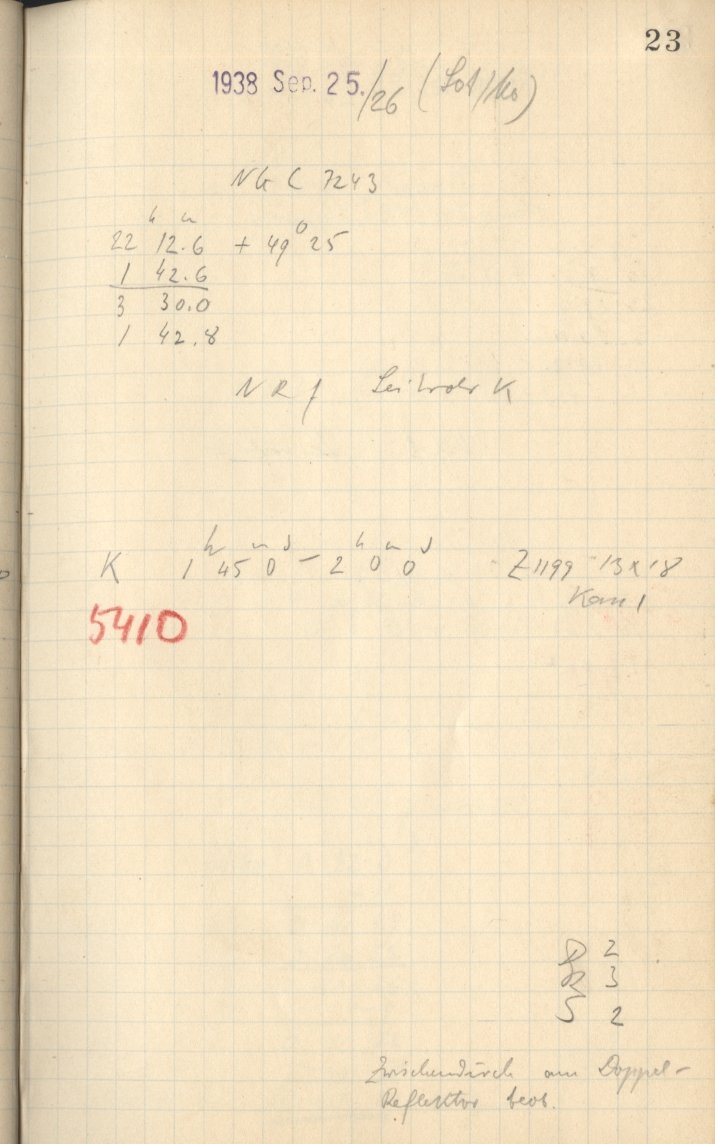 23
1938 Sep. 25./26 (Sot/Ko)
NGC 7243
h m
22 12.6 + 49° 25
1 42.6
3 30.0
1 42.8
NR f Leitrohr K
K 1h 45m 0s – 2h 0m 0s Z1199 13x18
Kass 1
5410
D 2
R 3
S 2
Zwischendurch am Doppel-
Reflektor beob.